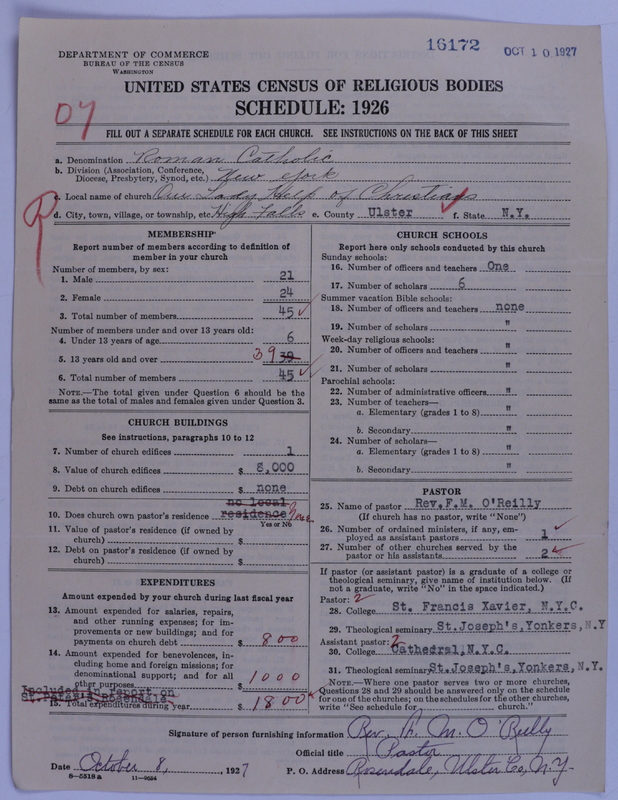 16172 OCT 10 1927
DEPARTMENT OF COMMERCE
BUREAU OF THE CENSUS
WASHINGTON
UNITED STATES CENSUS OF RELIGIOUS BODIES
SCHEDULE: 1926
FILL OUT A SEPARATE SCHEDULE FOR EACH CHURCH. SEE INSTRUCTIONS ON THE BACK OF THIS SHEET
a. Denomination Roman Catholic
b. Division (Association, Conference, Diocese, Presbytery, Synod, etc.) New York
c. Local name of church Our Lady Help of Christians
d. City, town, village, or township, etc. High Falls e. County Ulster f. State N.Y.
MEMBERSHIP
Report number of members according to definition of
member in your church
Number of members, by sex:
1. Male 21
2. Female 24
3. Total number of members 45
Number of members under and over 13 years old:
4. Under 13 years of age 6
5. 13 years old and over 39 39
6. Total number of members 45
NOTE.—The total given under Question 6 should be
same as the total of males and females given under Question 3.
CHURCH BUILDINGS
See instructions, paragraphs 10 to 12
7. Number of church edifices 1
8. Value of church edifices $ 8,000
9. Debt on church edifices $ none
no local
10. Does church own pastor's residence residence
Yes or No
11. Value of pastor's residence (if owned by
church) $
12. Debt on pastor's residence (if owned by
church) $
EXPENDITURES
Amount expended by your church during last fiscal year
13. Amount expended for salaries, repairs,
and other running expenses; for im-
provements or new buildings; and for
payments on church debt $ 800
14. Amount expended for benevolences, in-
cluding home and foreign missions; for
denominational support; and for all
other purposes $ 1000
Included in report on
15. Total expenditures during year $ 1800
CHURCH SCHOOLS
Report here only schools conducted by this church
Sunday schools:
16. Number of officers and teachers One
17. Number of scholars 6
Summer vacation Bible schools:
18. Number of officers and teachers none
19. Number of scholars "
Week-day religious schools:
20. Number of officers and teachers "
21. Number of scholars "
Parochial schools:
22. Number of administrative officers "
23. Number of teachers—
a. Elementary (grades 1 to 8) "
b. Secondary "
24. Number of scholars—
a. Elementary (grades 1 to 8) "
b. Secondary "
PASTOR
25. Name of pastor Rev. F.M. O'Reilly
(If church has no pastor, write "None")
26. Number of ordained ministers, if any, em-
ployed as assistant pastors 1
27. Number of other churches served by the
pastor or his assistants 2
If pastor (or assistant pastor) is a graduate of a college or
theological seminary, give name of institution below. (If
not a graduate, write "No" in the space indicated.)
Pastor: 2
28. College St. Francis Xavier, N.Y.C.
29. Theological seminary St.Joseph's,Yonkers,N.Y
Assistant pastor: 2
30. College Cathedral,N.Y.C.
31. Theological seminary St.Joseph's,Yonkers,N.Y.
NOTE.—Where one pastor serves two or more churches,
Questions 28 and 29 should be answered only on the schedule
for one of the churches; on the schedules for the other churches,
write "See schedule for church."
Signature of person furnishing information Rev. F. M. O'Reilly
Official title Pastor
Date October 8, , 1927 P. O. Address Rosendale, Ulster Co, N.Y.
8—5319a 11—9054